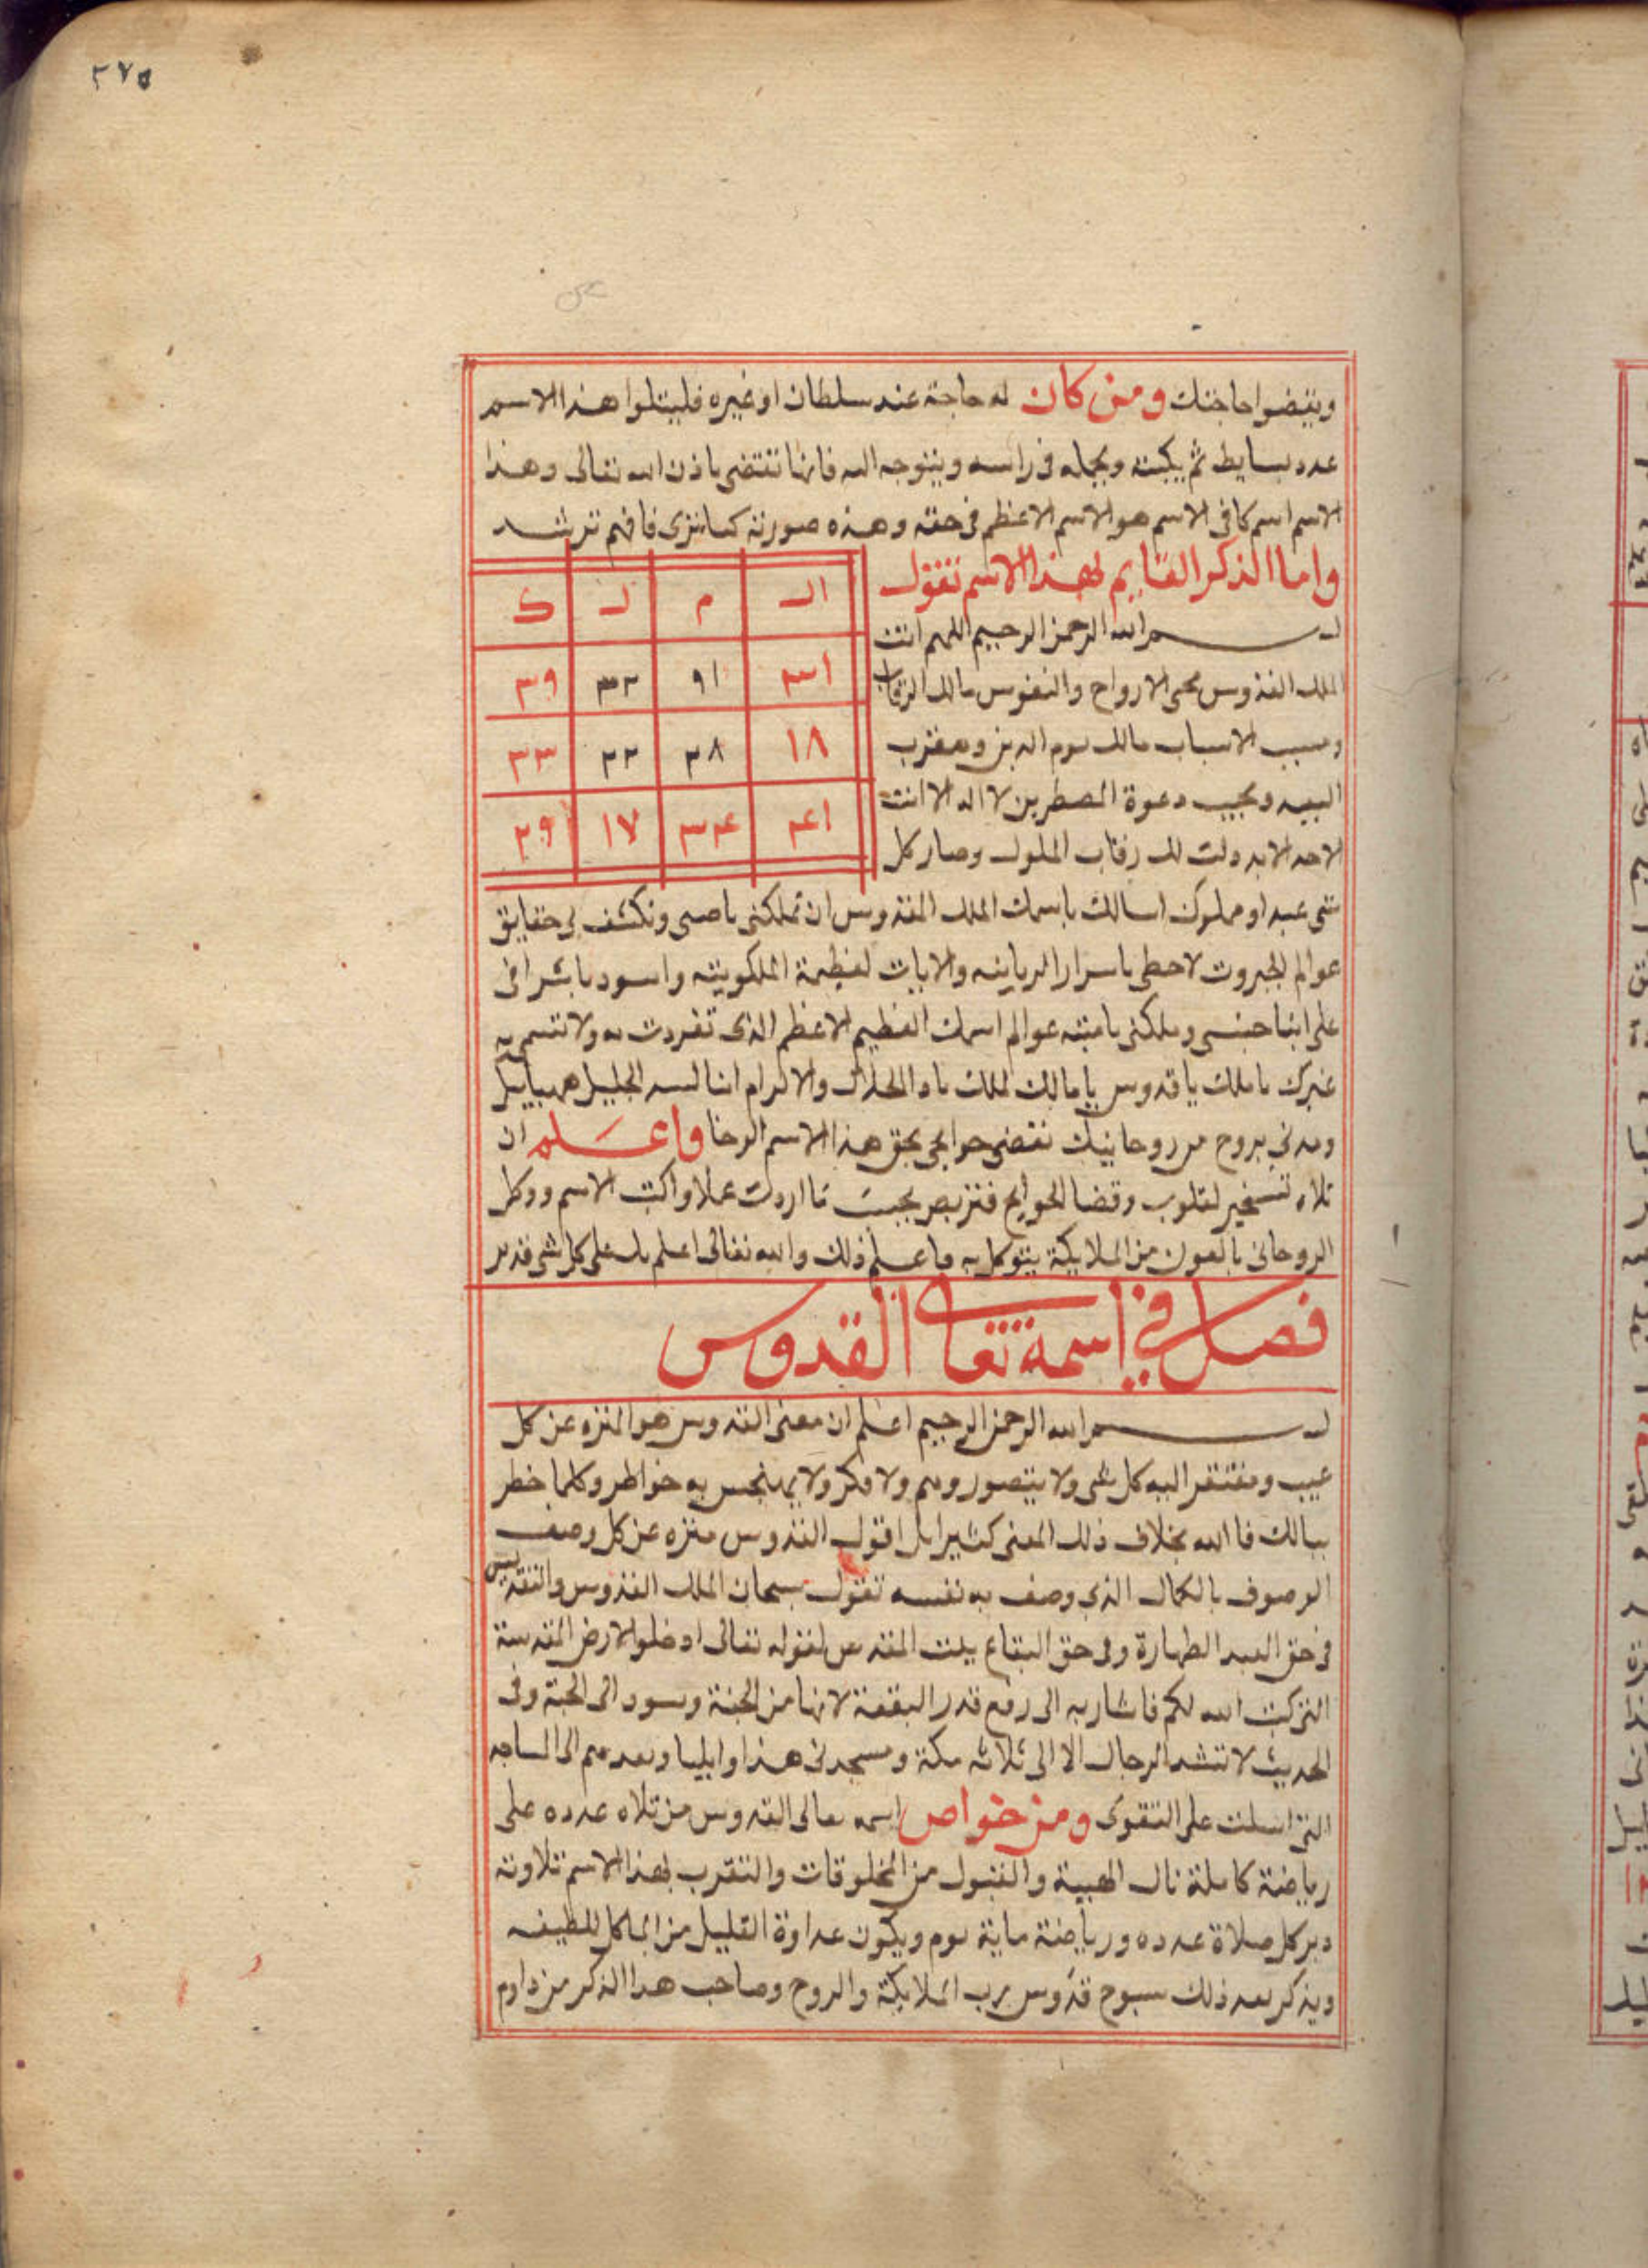 ٢٧٥
ويقضوا حاجتك ومن كان له حاجة عند سلطان او غيره فليتلوا هذا الاسم
عدد بسايط ثم يكبته ويجمله في راسه ويتوجه اليه فانها تقتضى باذن الله تعالى وهذا
الاسم اسم كافى الاسم هو الاسم الاعظم في حقه وهذه صورته كما ترى فافهم ترشد
واما الذكر القايم لهذا الاسم تقول
بسم الله الرحمن الرحيم اللهم انت
الملك القدوس محي الارواح والنفوس مالك الرقاب
ومسبب الاسباب مالك يوم الدين ومقرب
البعيد ومجيب دعوة المضطرين لا اله الا انت
الاحد الابد ذلت لك رقاب الملوك وصار كل
الـ م لـ ك
٣١ ٩١ ٣٢ ٣٩
١٨ ٢٨ ٢٢ ٣٣
٤١ ٣٤ ١٧ ٢٩
شى عبد او مملوك اسالك باسمك الملك القدوس ان تملكنى ناصيى وتكشف لي حقايق
عوالم الجبروت لاحظى باسرار الربانيه والايات لعظيمة الملكوتيه واسود باشرافى
على ابنا جنسى وملكنى عوالم اسمك العظيم الاعظم الذى تفردت به ولا تتسمى به
غيرك يا ملك يا قدوس يا مالك الملك ياد الجلال والاكرام السيد الجليل
ومدنى بروح من روحانيتك تقضى حوايجى بحق هذا الاسم الرحا واعلم ان
تلاه لتسخير لقلوب وقضا الحوايج فتزبص بجبت ما اردت عملا واكتب الاسم ووكل
الروحانى بالعون من الملايكة يتوكل به فاعلم ذلك والله تعالى اعلم بك على كل شى قدير
فصل في اسمه تعالى القدوس
بسم الله الرحمن الرحيم اعلم ان معنى القدوس هو المنزه عن كل
عيب ومفتقر اليه كل شى ولا يتصور وهم ولا فكر ولا به خواطر وكلما خطر
ببالك فا الله بخلاف ذلك المعنى كثيرا بل اقول القدوس منزه عن كل وصف
الوصوف بالكمال الذى وصف به نفسه تقول سبحان الملك القدوس والتقديس
في حق العبد الطهارة وفى حق البقاع بيت المقدس لقوله تعالى ادخلوا الارض المقدسة
التى كتب الله لكم فاشار به الى رفع قدر البقعة لانها من الجنة وسود الى الجنة وفى
الحديث لا تشد الرحال الا الى ثلاثه مكة ومسجدى هذا وايليا الى المساجد
التى اسلت على التقوى ومن خواص اسمه تعالى القدوس من تلاه عدده على
رياضة كاملة نال الهيبة والقبول من المخلوقات والتقرب لهذا الاسم تلاوته
دبر كل صلاة عدده ورياضة ماية يوم ويكون القليل من الماكل اللطيف
ويذكر بعد ذلك سبوح قدوس رب الملايكة والروح وصاحب هذا الذكر من داوم